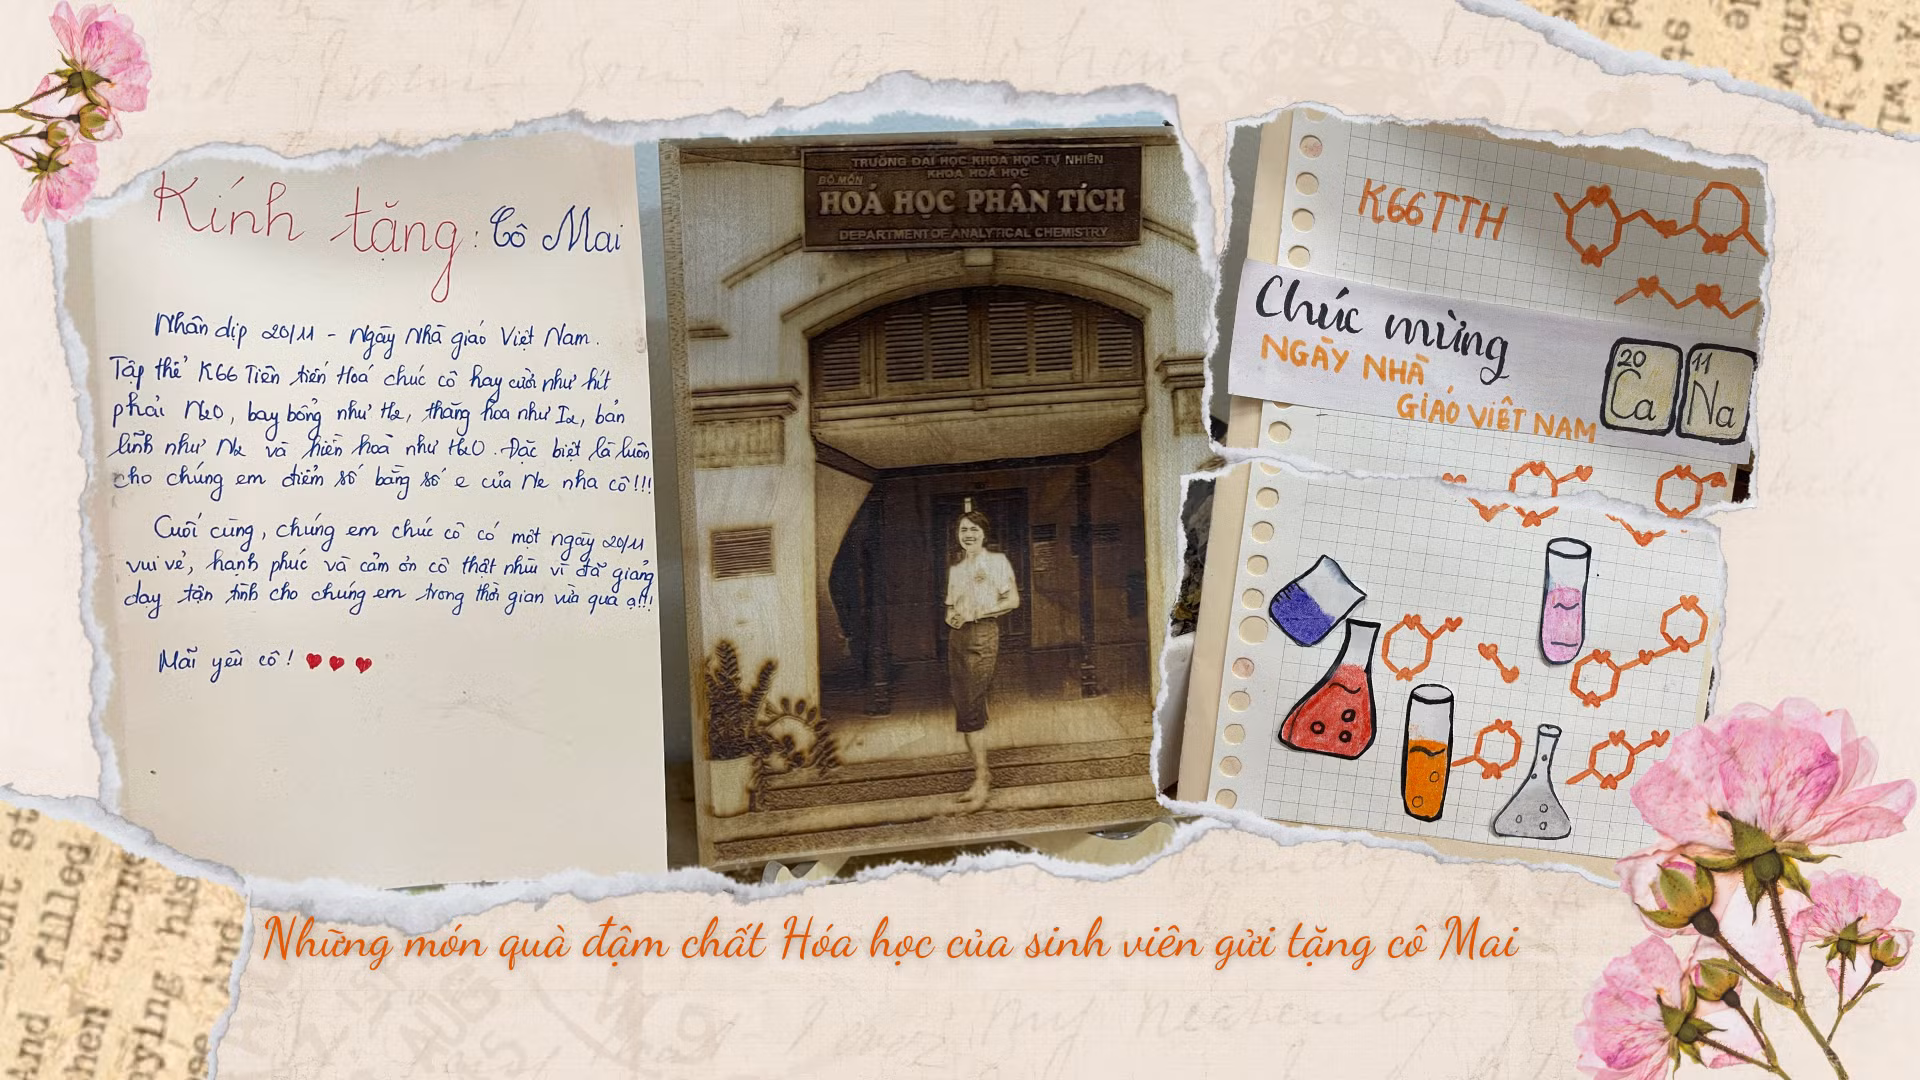 Kính tặng: Cô Mai
Nhân dịp 20/11 - Ngày Nhà giáo Việt Nam.
Tập thể K66 Tiên tiến Hoá chúc cô hay cười như hít
phải N2O, bay bổng như H2, thăng hoa như I2, bản
lĩnh như N2 và hiền hoà như H2O. Đặc biệt là luôn
cho chúng em điểm số bằng số e của Ne nha cô!!!
Cuối cùng, chúng em chúc cô có một ngày 20/11
vui vẻ, hạnh phúc và cảm ơn cô thật nhiều vì đã giảng
dạy tận tình cho chúng em trong thời gian vừa qua ạ!!!
Mãi yêu cô!
TRƯỜNG ĐẠI HỌC KHOA HỌC TỰ NHIÊN
KHOA HOÁ HỌC
BỘ MÔN
HOÁ HỌC PHÂN TÍCH
DEPARTMENT OF ANALYTICAL CHEMISTRY
K66TTH
Chúc mừng
NGÀY NHÀ
GIÁO VIỆT NAM
20 11
Ca Na
Những món quà đậm chất Hóa học của sinh viên gửi tặng cô Mai
filled
turne
his
And
then
know
or